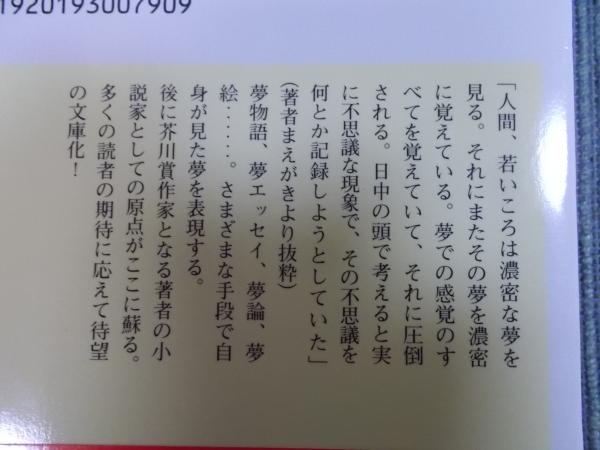 1920193007909
「人間、若いころは濃密な夢を
見る。それにまたその夢を濃密
に覚えている。夢での感覚のす
べてを覚えていて、それに圧倒
される。日中の頭で考えると実
に不思議な現象で、その不思議を
何とか記録しようとしていた」
(著者まえがきより抜粋)
夢物語、夢エッセイ、夢論、夢
絵……。さまざまな手段で自
身が見た夢を表現する。
後に芥川賞作家となる著者の小
説家としての原点がここに蘇る。
多くの読者の期待に応えて待望
の文庫化！